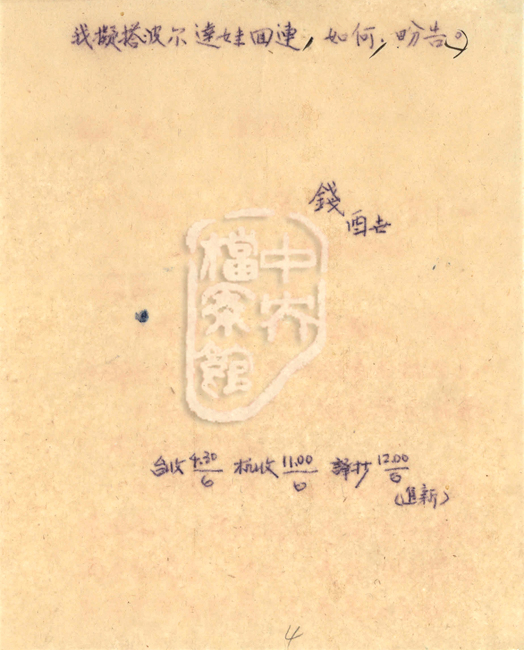 我擬搭波尔達妹回連，如何，盼告。
錢
酉世
中央
檔案館
台收4.30/6 杭收11.00/6 譯抄12.00/6
(進新)
4